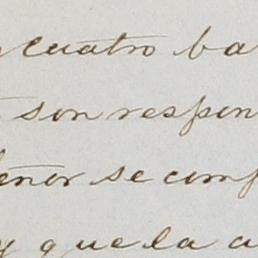 cuatro ba
son respon
eñor se comp
y que la a